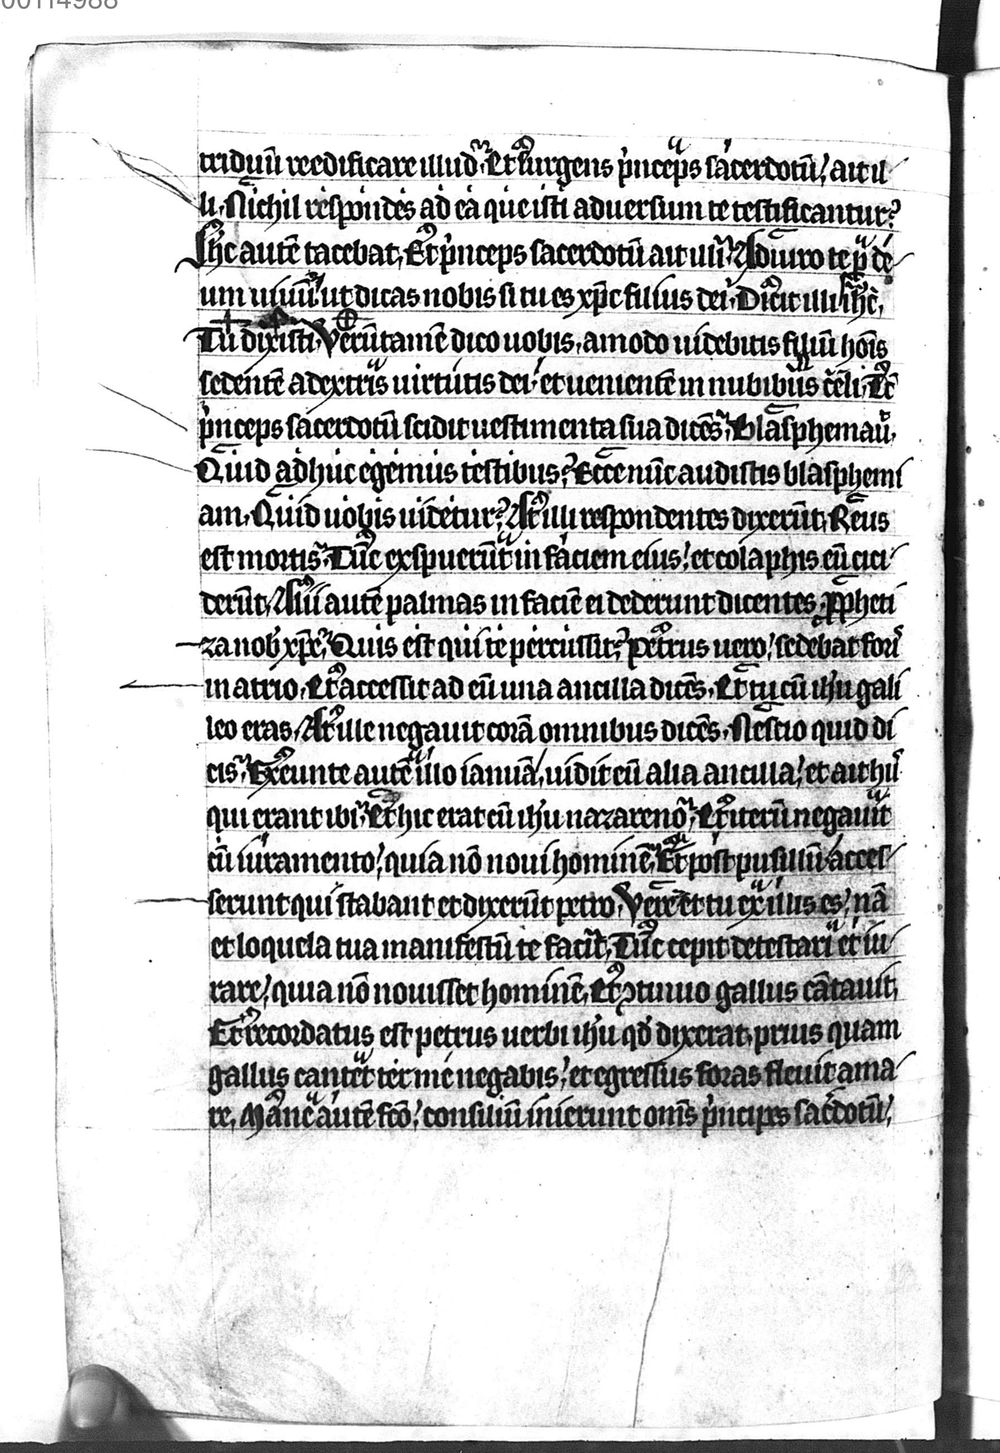 00114988
triduū reedificare illud. Et surgens p̓nceps sacerdotū, ait il
li. Nichil respondes ad ea que isti adversum te testificantur?
Ih̄c autē tacebat. Et p̓nceps sacerdotū ait illi. Adiuro te p̲ dē
um uiuū ut dicas nobis si tu es xp̄c filius dei. Dicit illi ih̄c.
Tu dixisti. Verūtamē dico uobis, amodo uidebitis filiū hoīs
sedentē a dextris uirtutis dei et uenientē in nubibus celi. Tc̄
p̓nceps sacerdotū scidit uestimenta sua dicēs. Blasphemauͥ.
Quid adhuc egemus testibus? Ecce nūc audistis blasphemi
am. Quid uobis uidetur? At illi respondentes dixerūt. Reus
est mortis. Tūc exspuerūt in faciem eius, et colaphis eū ceci
derūt. Alii autē palmas in faciē ei dederunt dicentes. Ppheti
za nob̄ xp̄e. Quis est qui te percussit? Petrus uero sedebat foris
in atrio. Et accessit ad eū una ancilla dicēs. Et tu cū ih̄u gali
leo eras. At ille negauit corā omnibus dicēs. Nescio quid di
cis. Exeunte autē illo ianuā, uidit eū alia ancilla, et ait hiis
qui erant ibi. Et hic erat cū ih̄u nazareno. Et iterū negauit
cū iuramento, quia nō noui hominē. Et post pusillū acces
serunt qui stabant et dixerūt petro. Vere et tu ex illis es, nā
et loquela tua manifestū te facit. Tūc cepit detestari et iu
rare, quia nō nouisset hominē. Et ꝯtinuo gallus cātauit.
Et recordatus est petrus uerbi ih̄u qd̄ dixerat, prius quam
gallus cantet ter me negabis, et egressus foras fleuit ama
re. Mane autē fc̄o, consiliū inierunt om̄s p̓ncipes sac̄dotū,